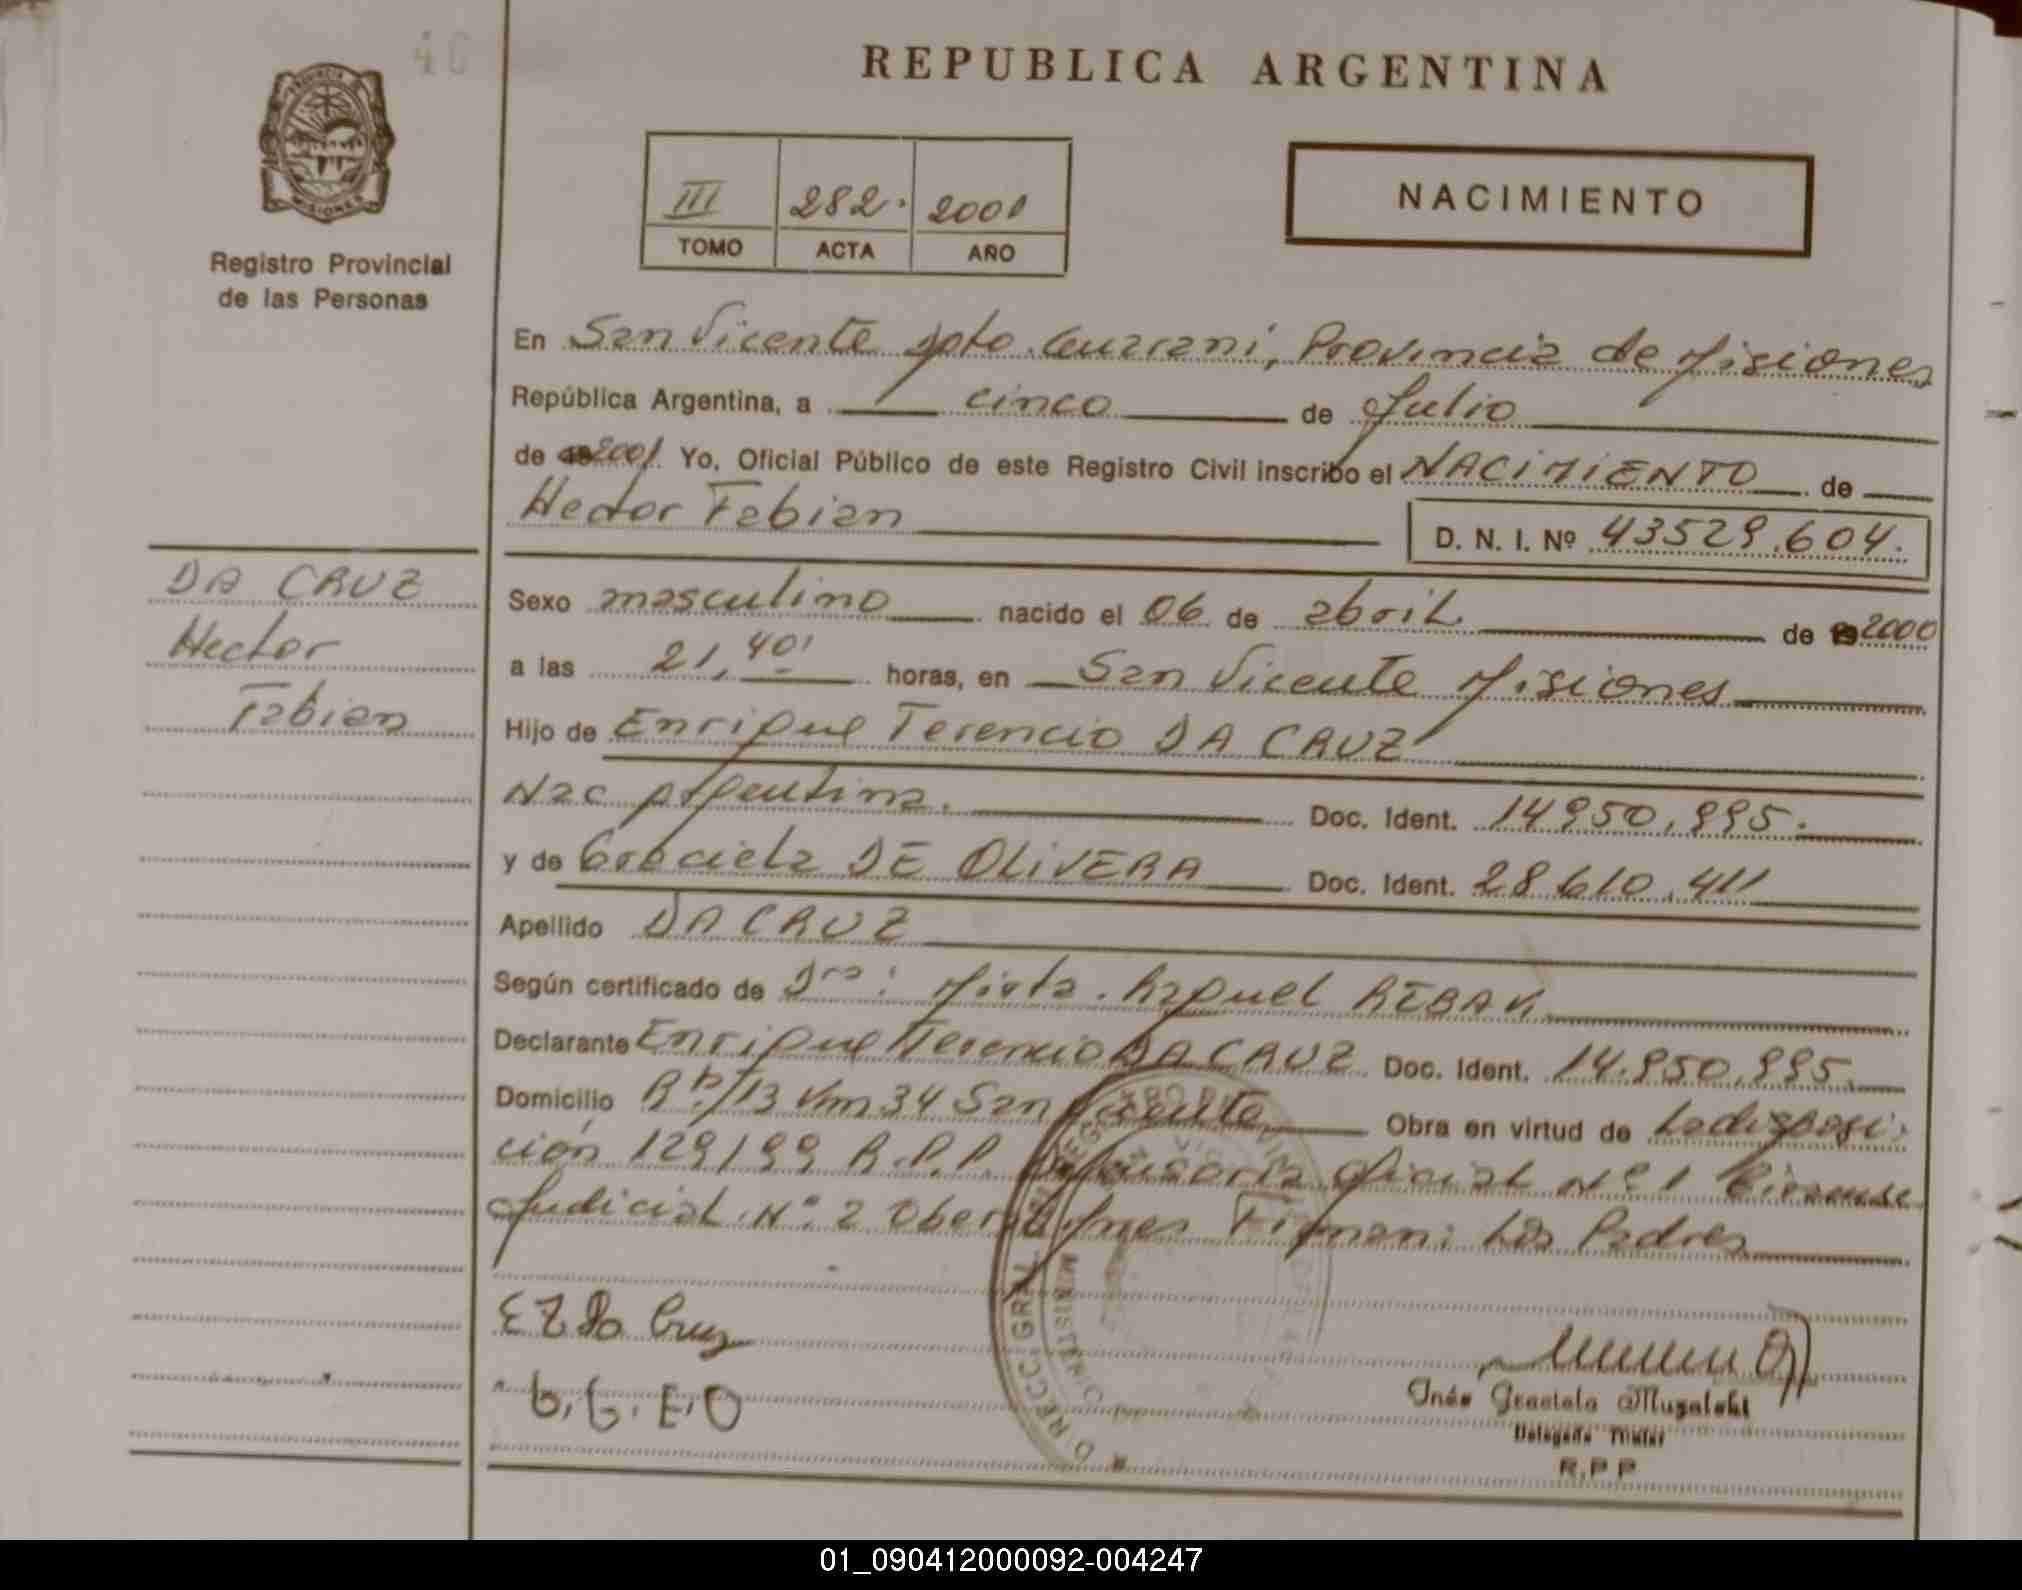 REPUBLICA ARGENTINA
PROVINCIA
MISIONES
Registro Provincial
de las Personas
III 282. 2001
TOMO ACTA AÑO
NACIMIENTO
En San Vicente Dpto. Guarani, Provincia de Misiones
República Argentina, a cinco de Julio
de 2001. Yo, Oficial Público de este Registro Civil inscribo el NACIMIENTO de
Hector Fabian
D. N. I. Nº 43529.604.
DA CRUZ
Hector
Fabian
Sexo masculino nacido el 06 de abril de 2000
a las 21,40' horas, en San Vicente Misiones
Hijo de Enrique Terencio DA CRUZ
Nac Argentina. Doc. Ident. 14950.995.
y de Graciela DE OLIVERA Doc. Ident. 28610.411
Apellido DA CRUZ
Según certificado de Dra: Mirta. Raquel
Declarante Enrique Terencio DA CRUZ Doc. Ident. 14.950.995.
Domicilio 13 Km 34 San Vicente Obra en virtud de La disposi-
ción 129/99 R.P.P. Defensoria Oficial Nº 1
Judicial Nº 2 Obera Mnes Firman: Los Padres
E T Da Cruz
G. G. E. O
Inés Graciela Muzaleki
Delegada Titular
R.P.P
01_090412000092-004247